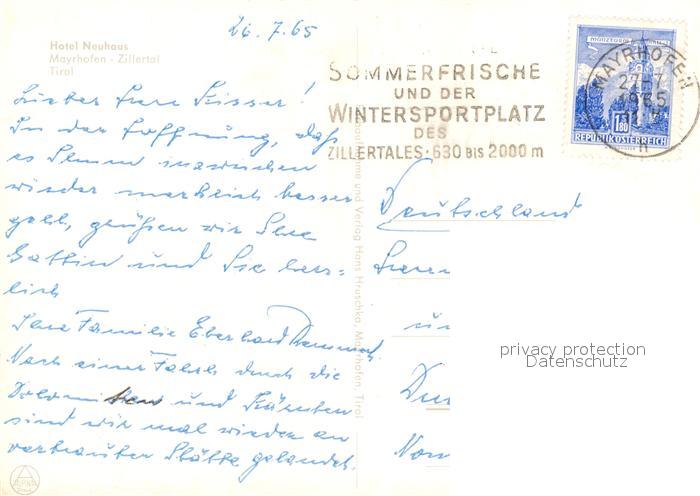 26.7.65
Hotel Neuhaus
Mayrhofen - Zillertal
Tirol
Lieber Herr Lisser!
In der Hoffnung, daß
es Ihnen inzwischen
wieder merklich besser
geht, grüßen wir Ihre
Gattin und Sie herz=
lich
Ihre Familie Eberhard
Nach einer Fahrt durch die
Dolomiten und Kärnten
sind wir mal wieder an
vertrauter Stätte gelandet.
SOMMERFRISCHE
UND DER
WINTERSPORTPLATZ
DES
ZILLERTALES · 630 BIS 2000 m
MAYRHOFEN
27.-7.
1965
MÜNZTURM
1.80
REPUBLIK ÖSTERREICH
und Verlag Hans Hruschka, Mayrhofen, Tirol
Deutschland
privacy protection
Datenschutz